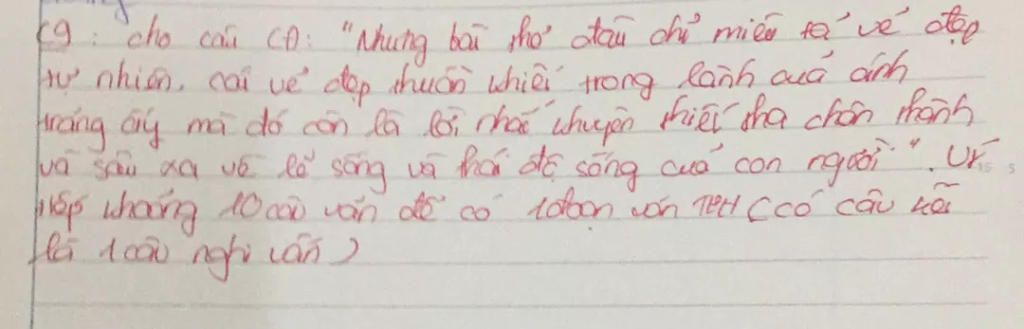 C9: cho câu CĐ: "Nhưng bài thơ đâu chỉ miêu tả vẻ đẹp
tự nhiên, cái vẻ đẹp thuần khiết trong lành của ánh
trăng ấy mà đó còn là lời nhắc khuyên thiết tha chân thành
và sâu xa về lẽ sống và thái độ sống của con người". Viết
tiếp khoảng 10 câu văn để có 1 đoạn văn TPH (có câu kết
là 1 câu nghi vấn)